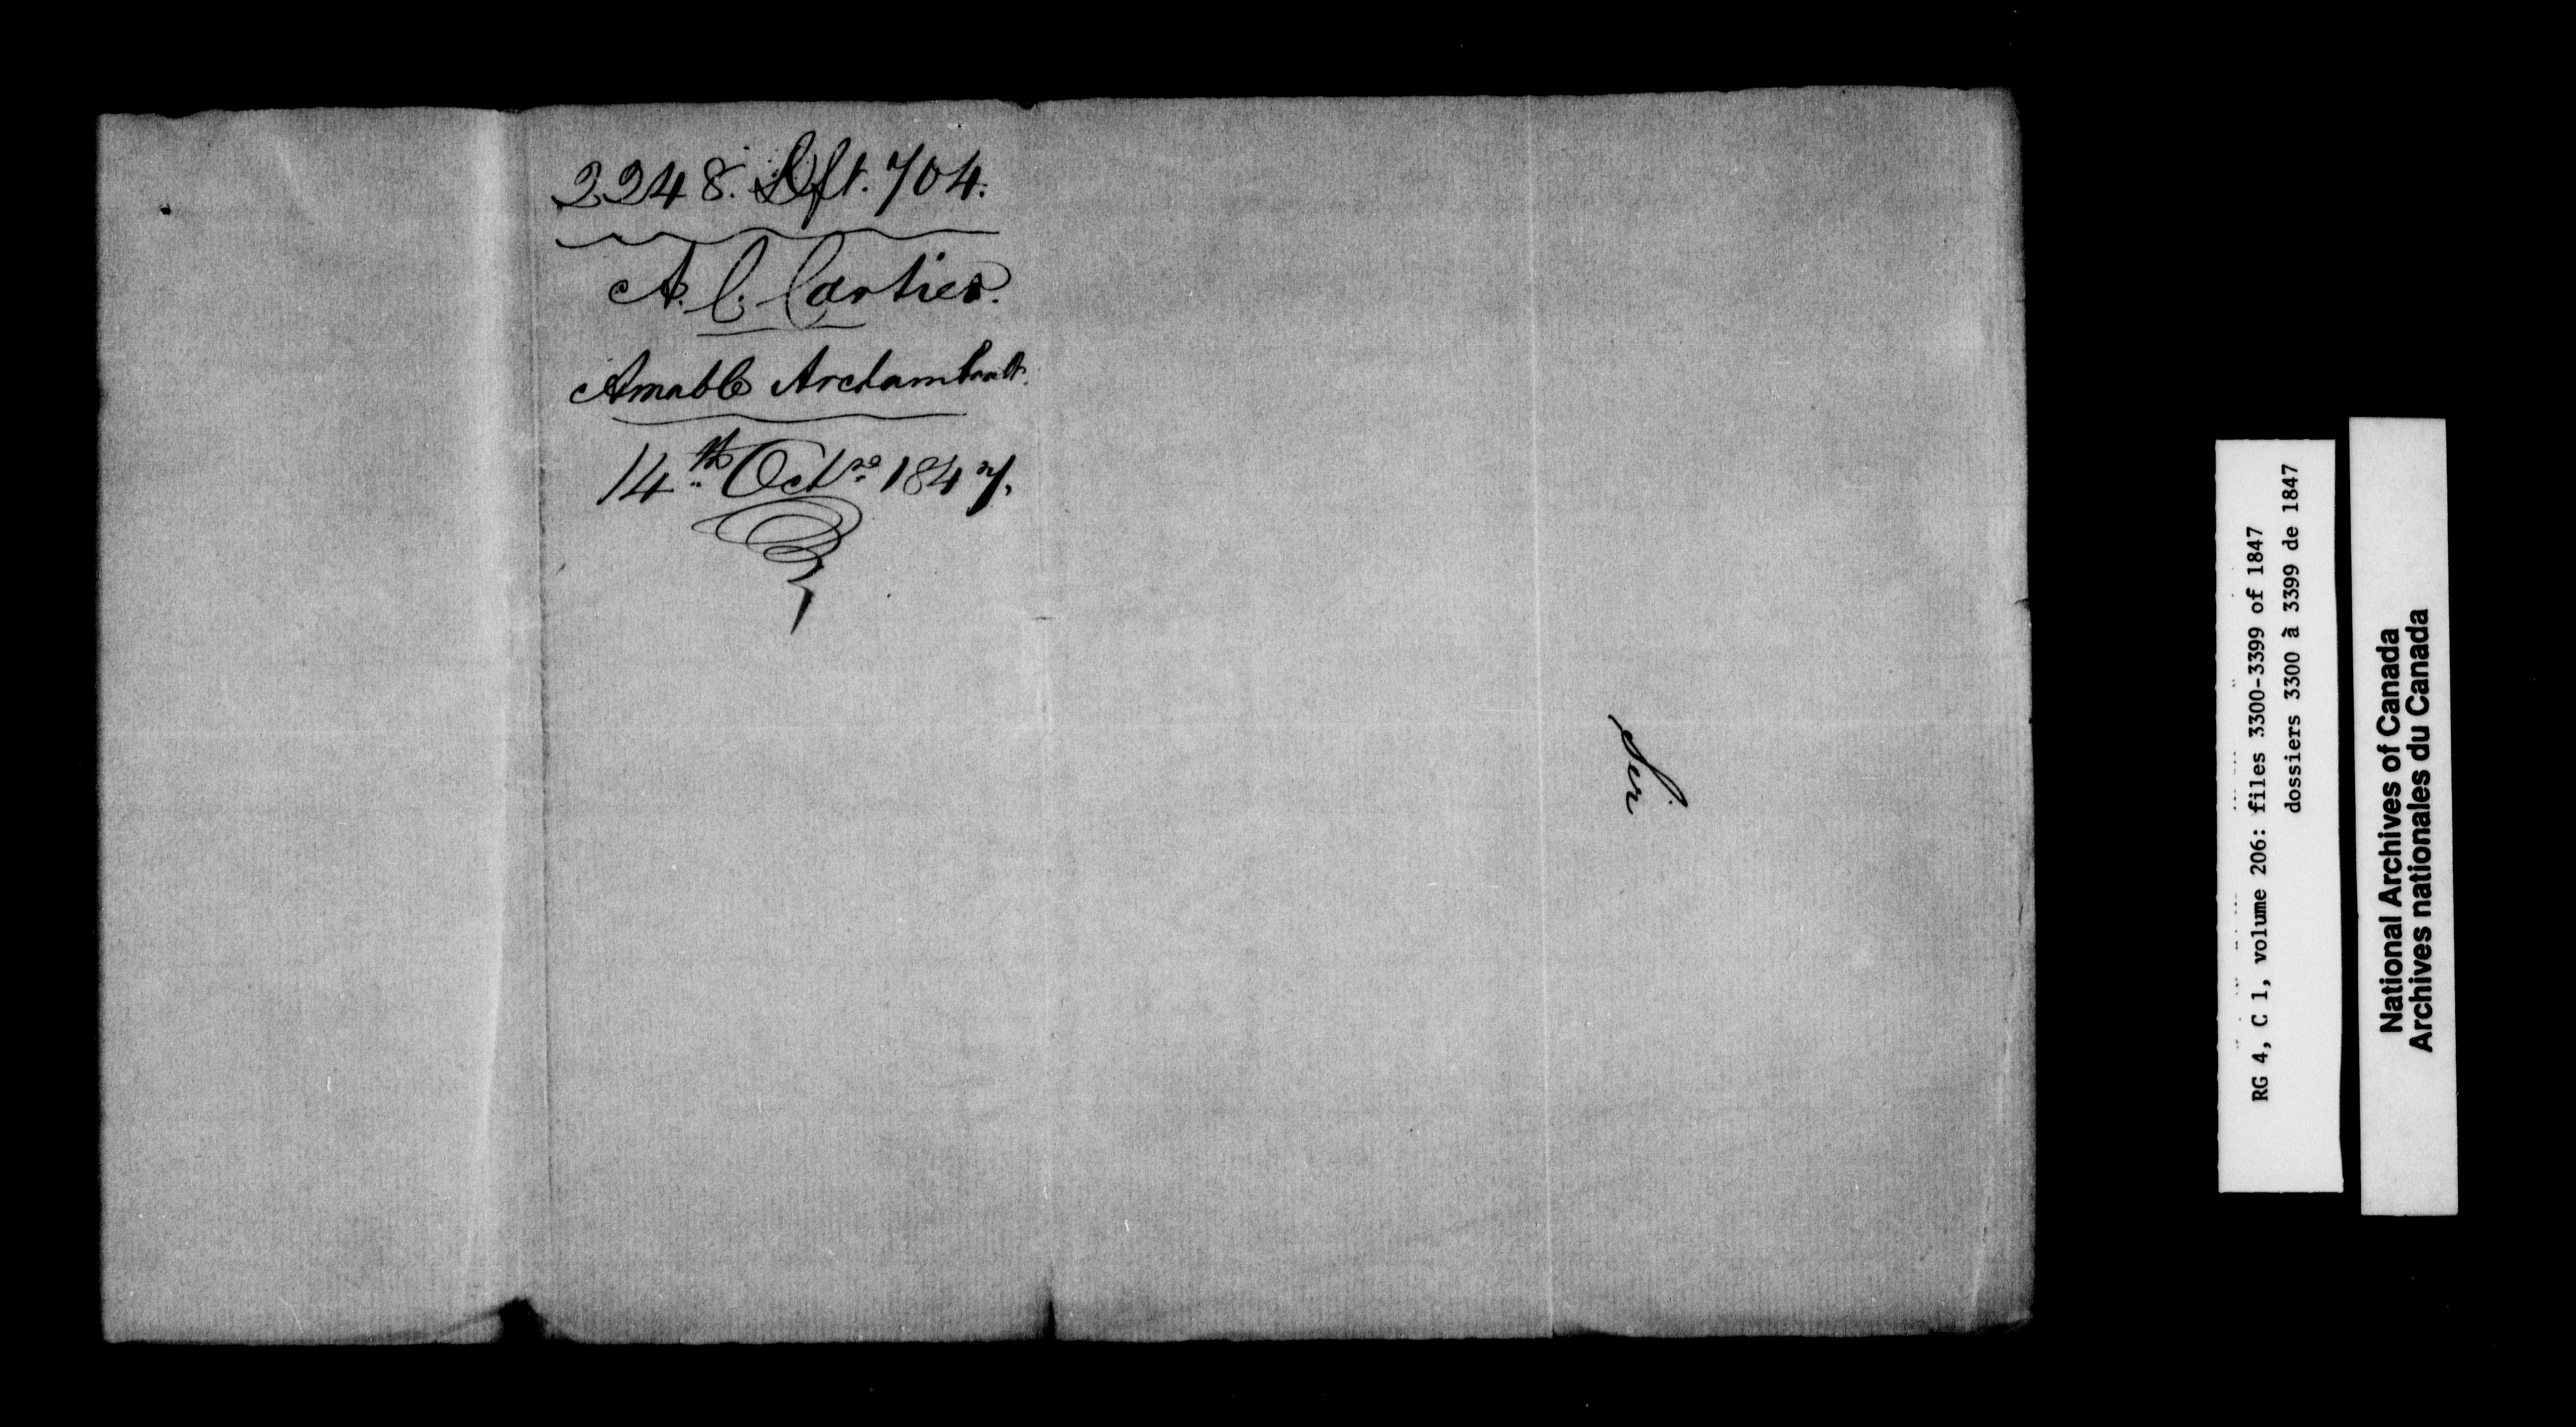 2248. Dft. 704.
A. C. Cartier.
Amable Archambault.
14th Octre 1847.
Sir
RG 4, C 1, volume 206: files 3300-3399 of 1847
dossiers 3300 à 3399 de 1847
National Archives of Canada
Archives nationales du Canada